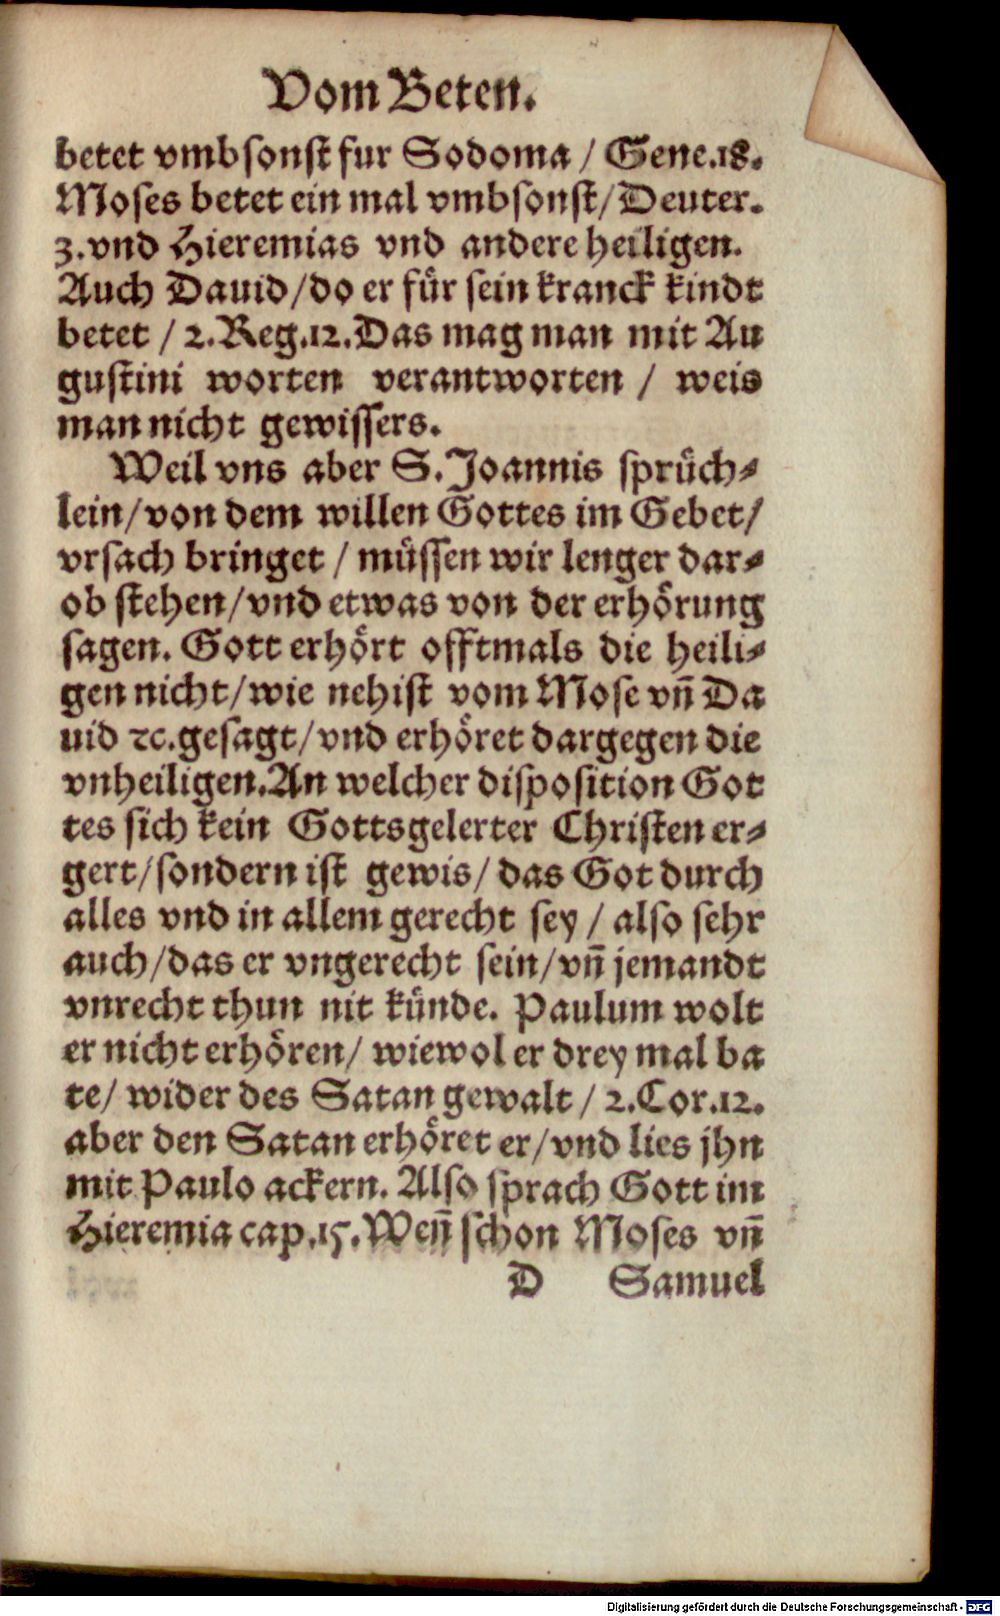 Vom Beten.
betet vmbsonst fur Sodoma / Gene.18.
Moses betet ein mal vmbsonst/ Deuter.
3. vnd Hieremias vnd andere heiligen.
Auch Dauid/ do er für sein kranck kindt
betet / 2. Reg.12. Das mag man mit Au
gustini worten verantworten / weis
man nicht gewissers.
Weil vns aber S. Joannis sprüch⸗
lein/ von dem willen Gottes im Gebet/
vrsach bringet / müssen wir lenger dar⸗
ob stehen/ vnd etwas von der erhörung
sagen. Gott erhört offtmals die heili⸗
gen nicht/ wie nehist vom Mose vn̄ Da
uid ꝛc. gesagt/ vnd erhöret dargegen die
vnheiligen. An welcher disposition Got
tes sich kein Gottsgelerter Christen er⸗
gert/ sondern ist gewis/ das Got durch
alles vnd in allem gerecht sey / also sehr
auch/ das er vngerecht sein/ vn̄ jemandt
vnrecht thun nit künde. Paulum wolt
er nicht erhören/ wiewol er drey mal ba
te/ wider des Satan gewalt / 2. Cor.12.
aber den Satan erhöret er/ vnd lies jhn
mit Paulo ackern. Also sprach Gott im
Hieremia cap.15. Wen̄ schon Moses vn̄
D Samuel
Digitalisierung gefördert durch die Deutsche Forschungsgemeinschaft - DFG